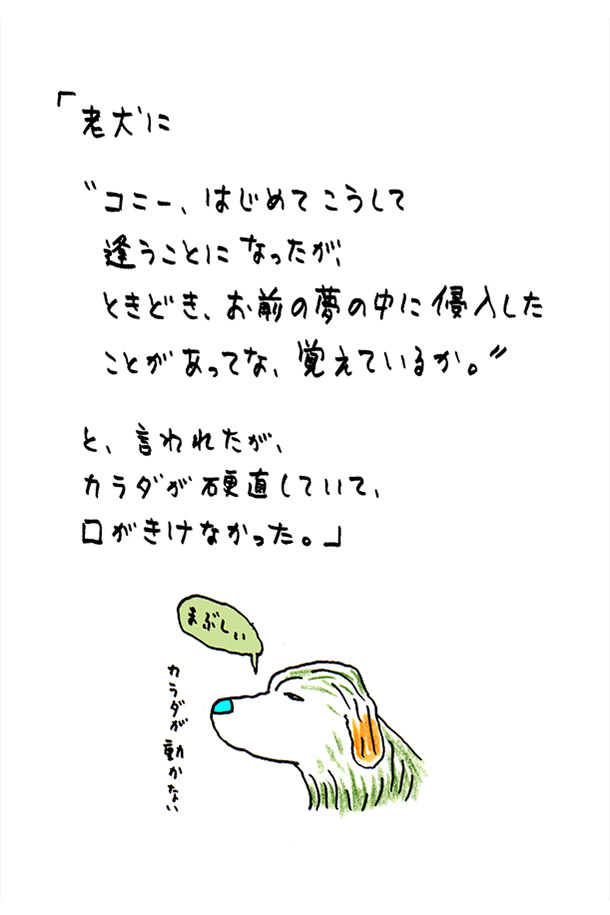 「老犬に
〝コニー、はじめてこうして
逢うことになったが、
ときどき、お前の夢の中に侵入した
ことがあってな、覚えているか。〟
と、言われたが、
カラダが硬直していて、
口がきけなかった。」
まぶしぃ
カラダが動かない